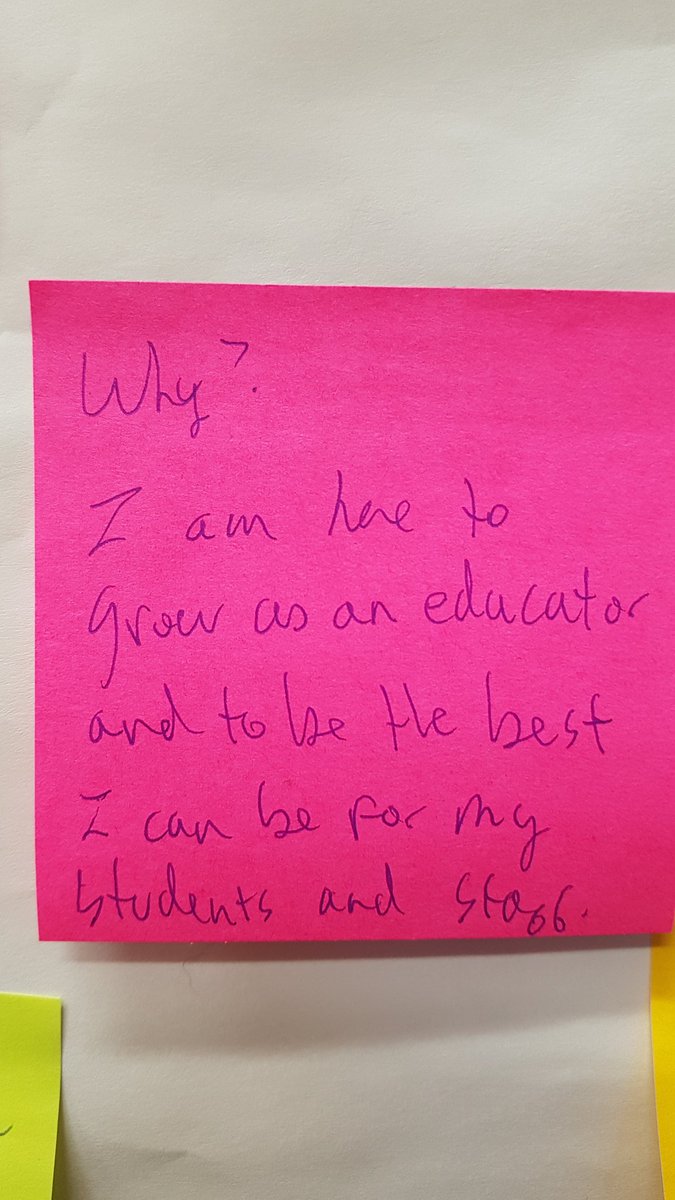 Why?
I am here to
grow as an educator
and to be the best
I can be for my
students and staff.